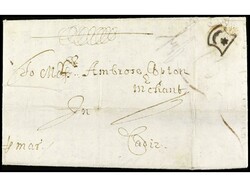 To Mr Ambrose
Merchant
In
Cadiz
p mar